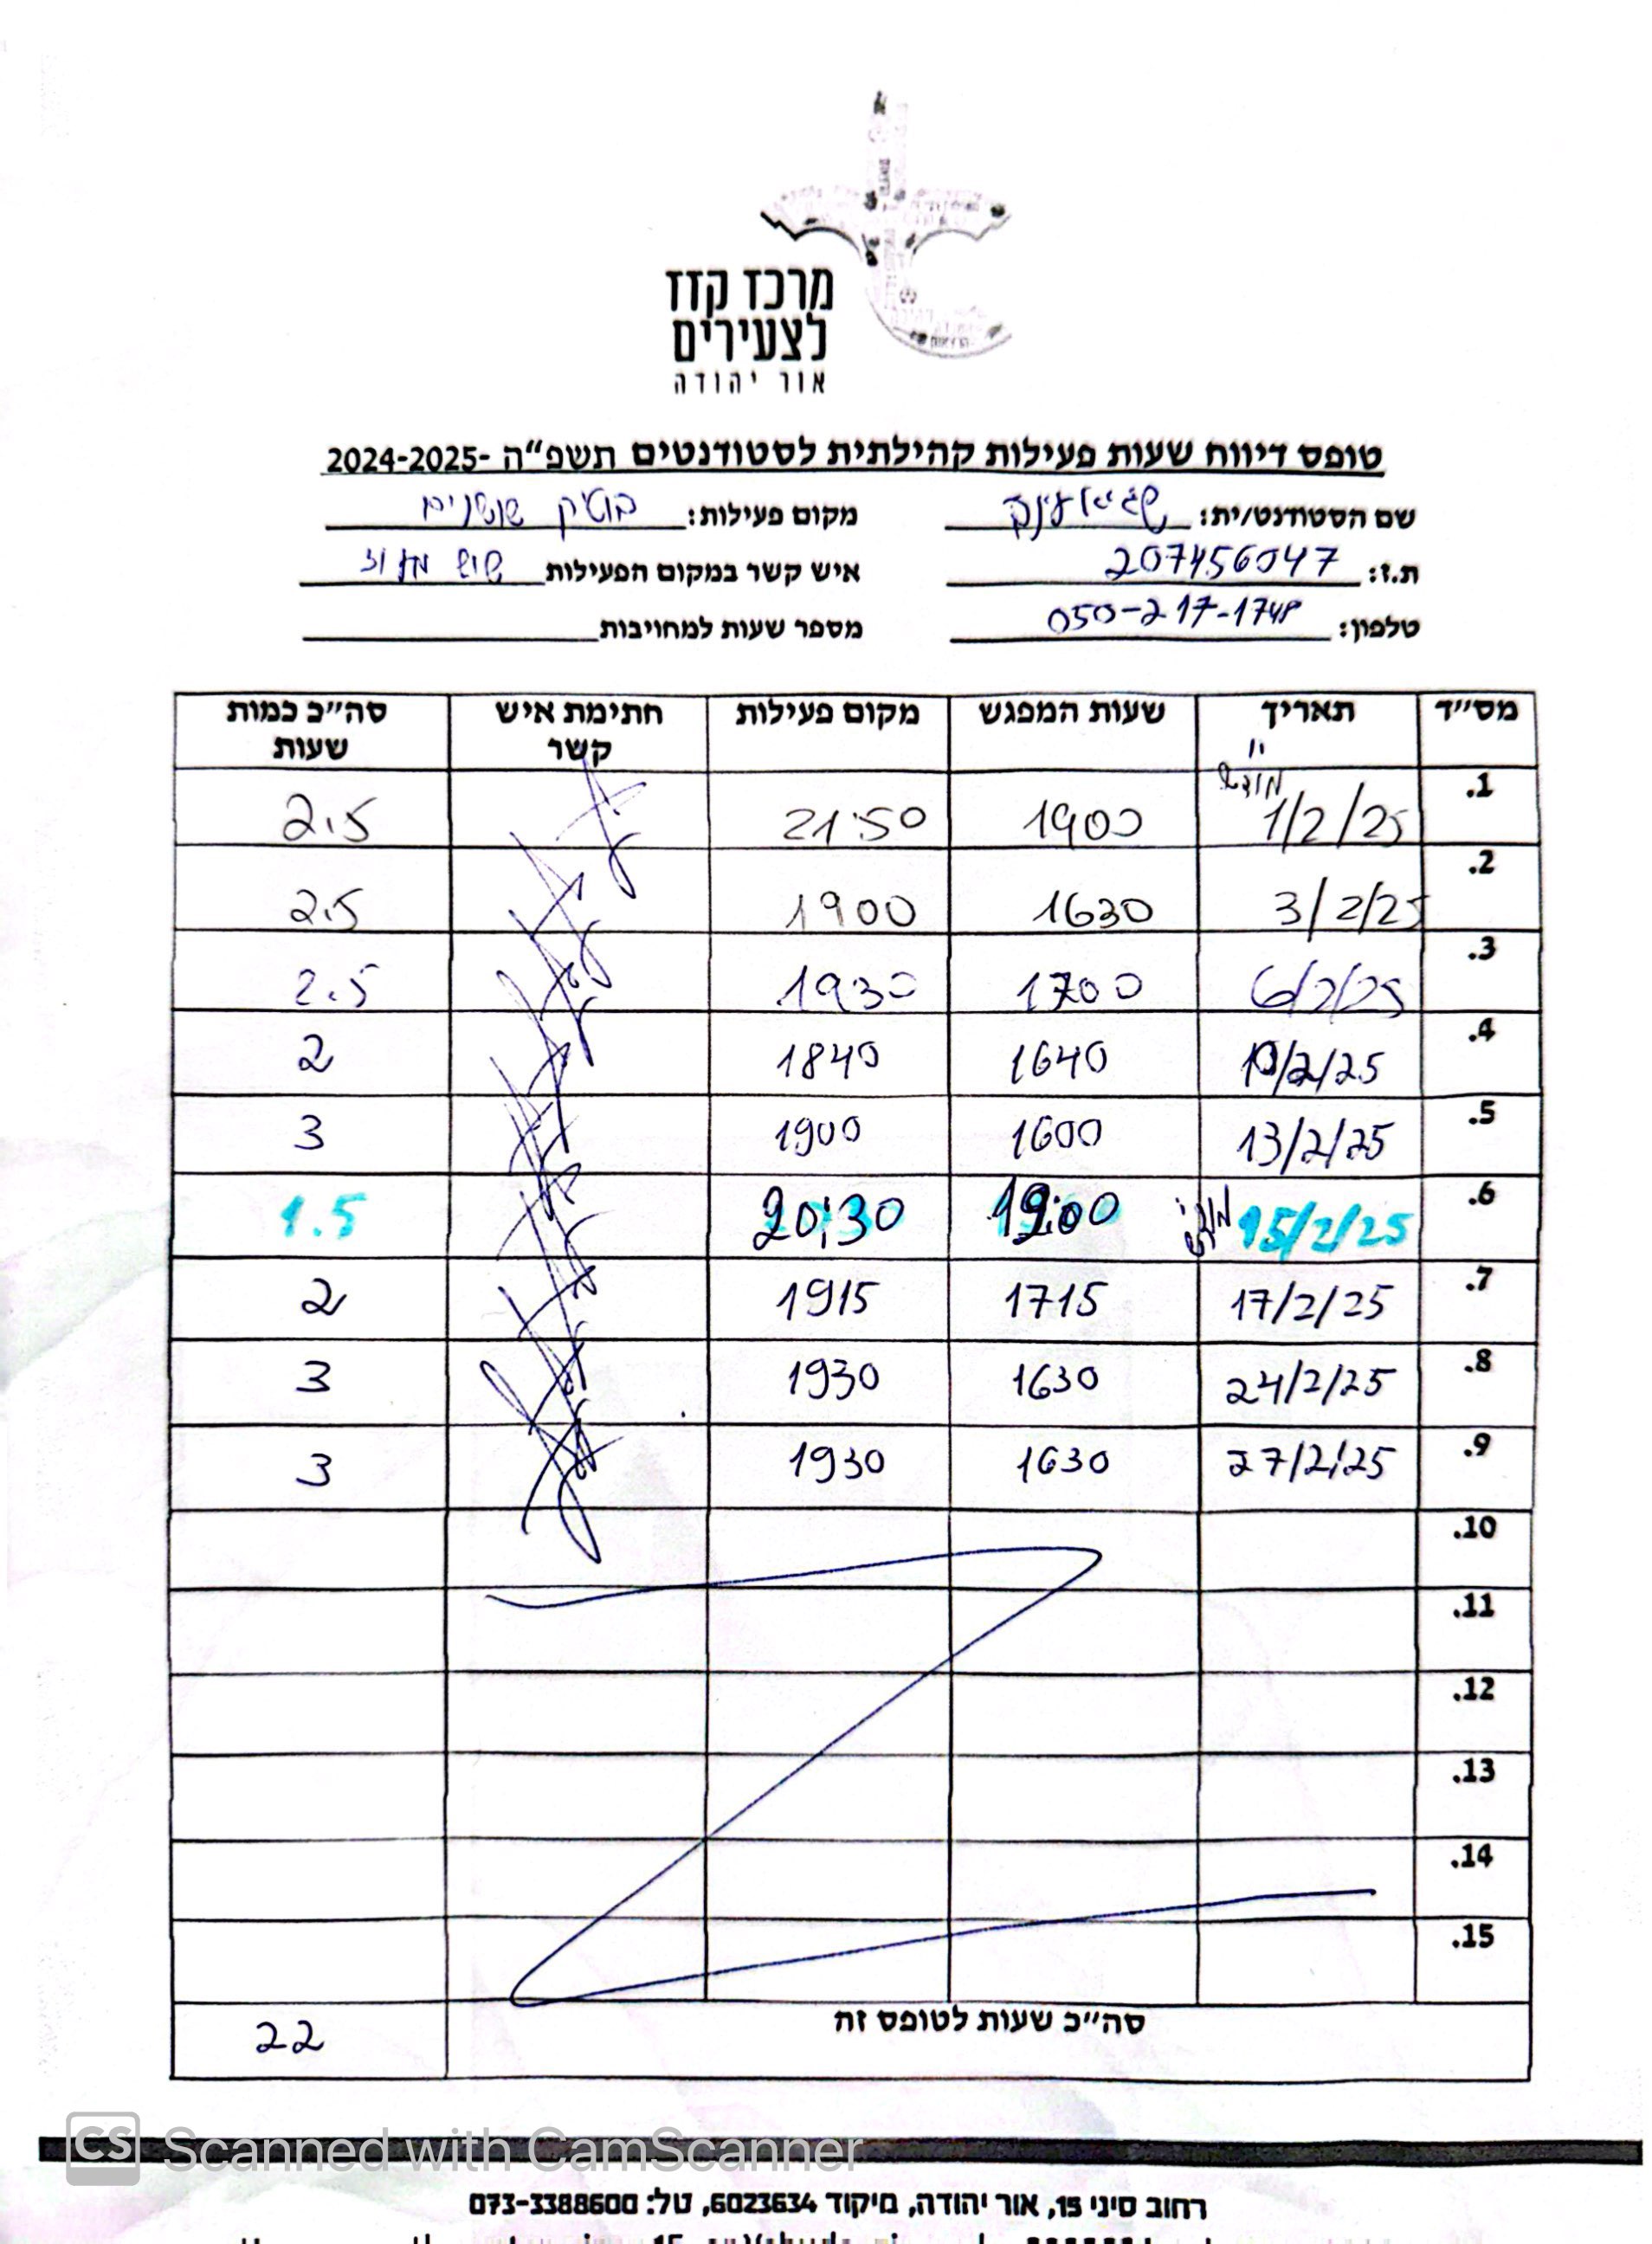 מרכז קזז
לצעירים
אור יהודה
טופס דיווח שעות פעילות קהילתית לסטודנטים תשפ״ה -2024-2025
שם הסטודנט/ית: מקום פעילות: בוטיק שושנים
ת.ז: 207456047 איש קשר במקום הפעילות שוש
טלפון: 050-217-1748 מספר שעות למחויבות
מס״ד תאריך שעות המפגש מקום פעילות חתימת איש קשר סה״כ כמות שעות
.1 1/2/25 1900 21:50 2.5
.2 3/2/25 1630 1900 2.5
.3 6/2/25 1700 1930 2.5
.4 10/2/25 1640 1840 2
.5 13/2/25 1600 1900 3
.6 15/2/25 19:00 20:30 1.5
.7 17/2/25 1715 1915 2
.8 24/2/25 1630 1930 3
.9 27/2/25 1630 1930 3
.10
.11
.12
.13
.14
.15
סה״כ שעות לטופס זה 22
CS Scanned with CamScanner
רחוב סיני 15, אור יהודה, מיקוד 6023634, טל: 073-3388600